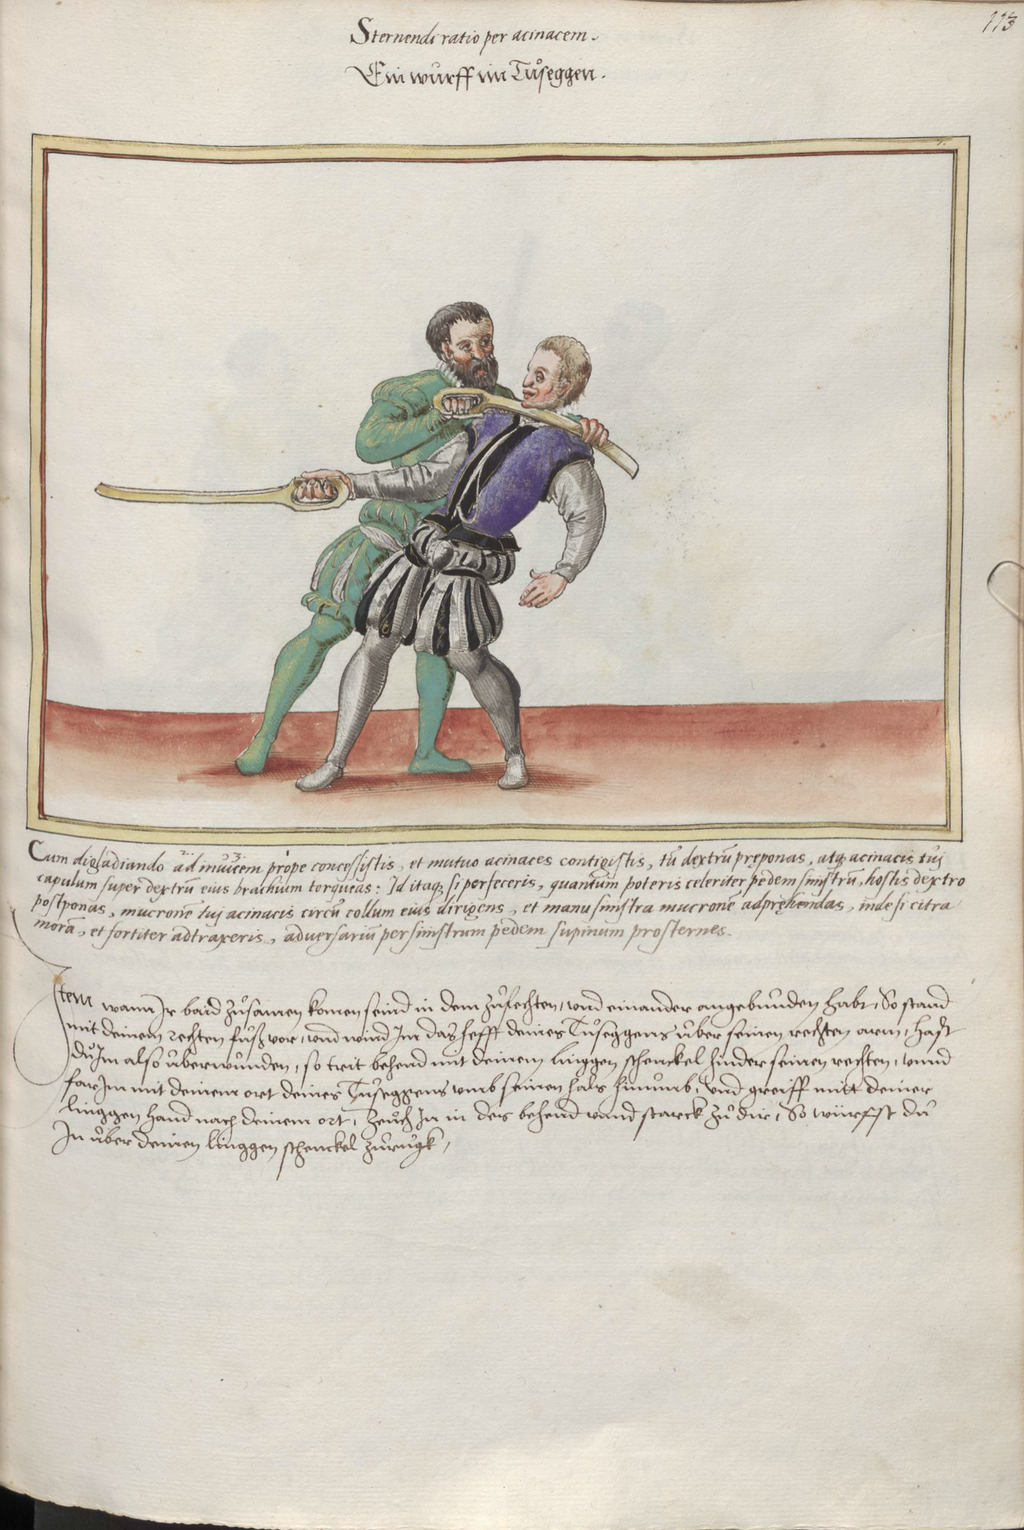 113
Sternendi ratio per acinacem.
Ein wurff im Tůseggen.
Cum digladiando ad invicem prope concessistis, et mutuo acinaces contigistis, tũ dextrũ preponas, atq; acinacis tuj
capulum super dextrũ eius brachium torqueas: Id itaq; si perfeceris, quantum poteris celeriter pedem sinistrũ, hostis dextro
postponas, mucronẽ tuj acinacis circũ collum eius dirigens, et manu sinistra mucronẽ adpręhendas, inde si citra
morã, et fortiter adtraxeris, adversariũ per sinistrum pedem supinum prosternes.
Item wann Jr baid zůsamen komen seind in dem zůfechten, vnd einander angebunden habt, So stand
mit deinem rechten fůß vor, vnd wind Jm das hefft deines Tůseggens über seinen rechten arm, hast
du Jm also überwunden, so trit behend mit deinem linggen schenckel hinder seinen rechten, vnnd
far Jm mit deinem ort deines Tůseggens vmb seinen hals hinumb, vnd greiff mitt deiner
linggen hand nach deinem ort, Zeuch Jn in des behend vnnd starck zů dir, So würffst du
Jn über deinen linggen schenckel zůrugk,